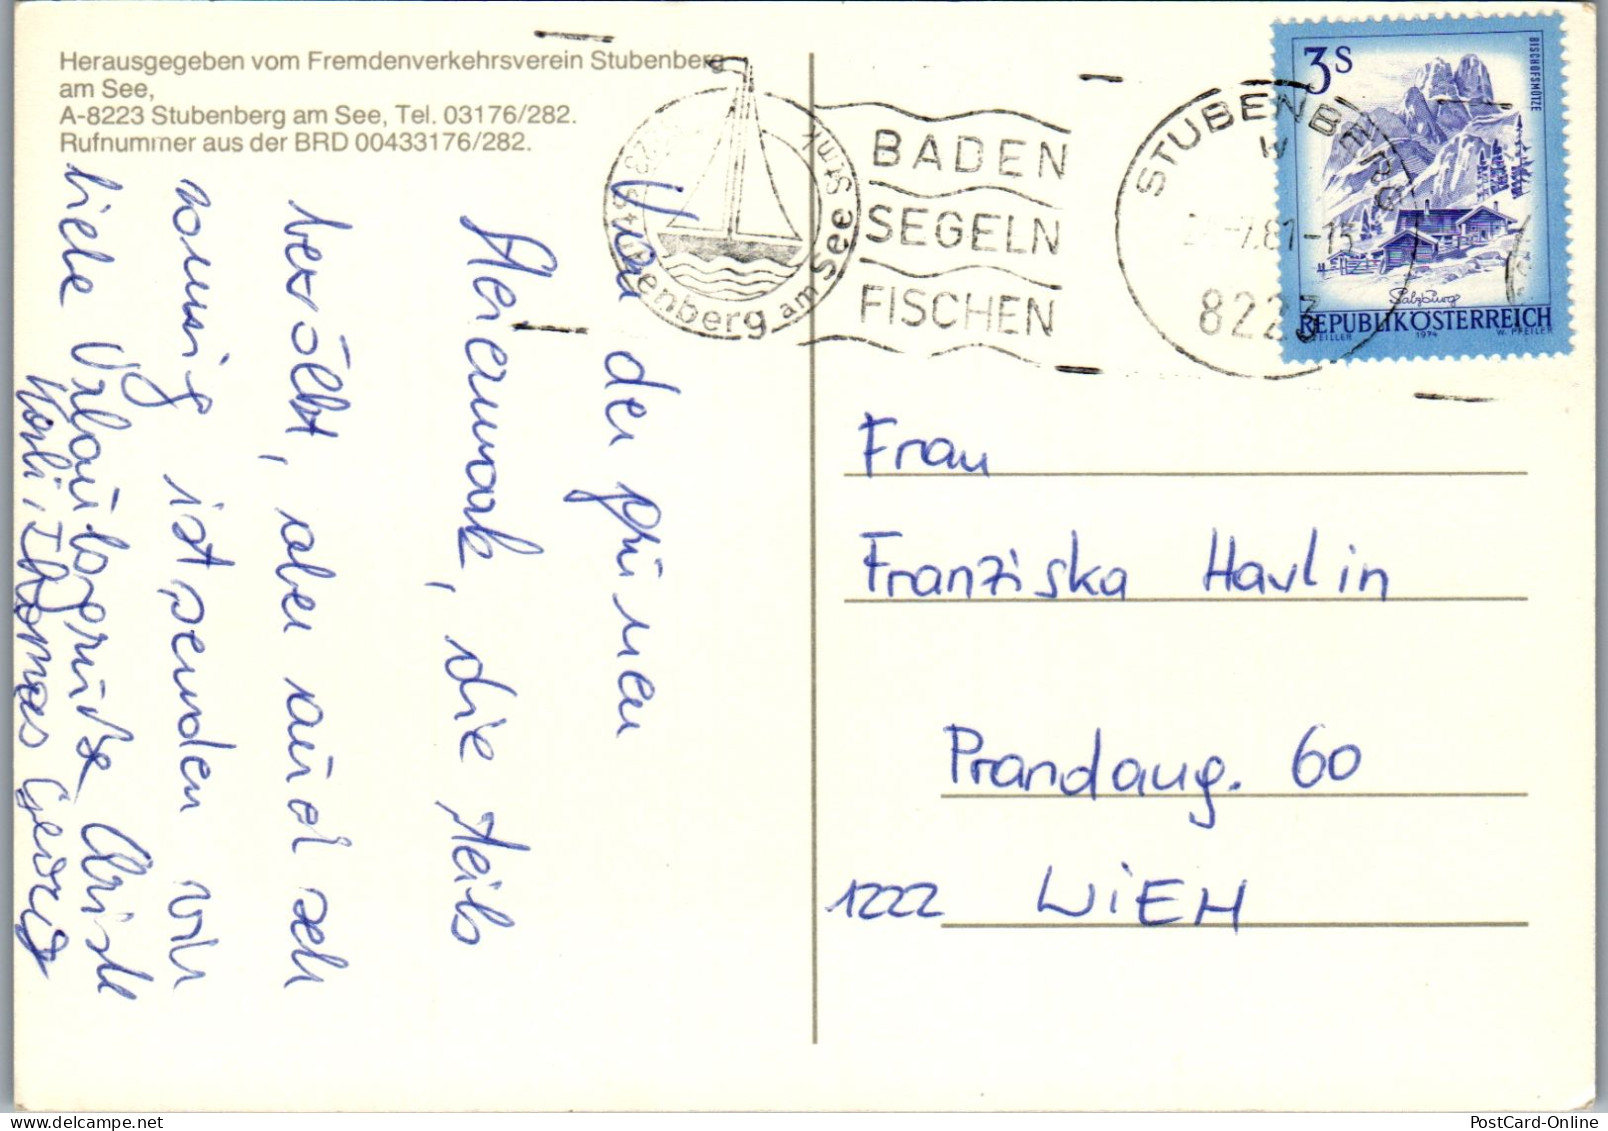 Herausgegeben vom Fremdenverkehrsverein Stubenberg
am See,
A-8223 Stubenberg am See, Tel. 03176/282.
Rufnummer aus der BRD 00433176/282.
Von der grünen
Steiermark, die teils
bewölkt, aber auch sehr
sonnig ist, senden wir
liebe Urlaubsgrüße Christl
Karli, Thomas Georg
8223 Stubenberg am See Stmk
BADEN
SEGELN
FISCHEN
STUBENBERG
7.81-15
8223
3S
BISCHOFSMÜTZE
Salzburg
REPUBLIK ÖSTERREICH
1974 W. PFEILER
Frau
Franziska Havlin
Prandaug. 60
1222 WIEN
PostCard-Online